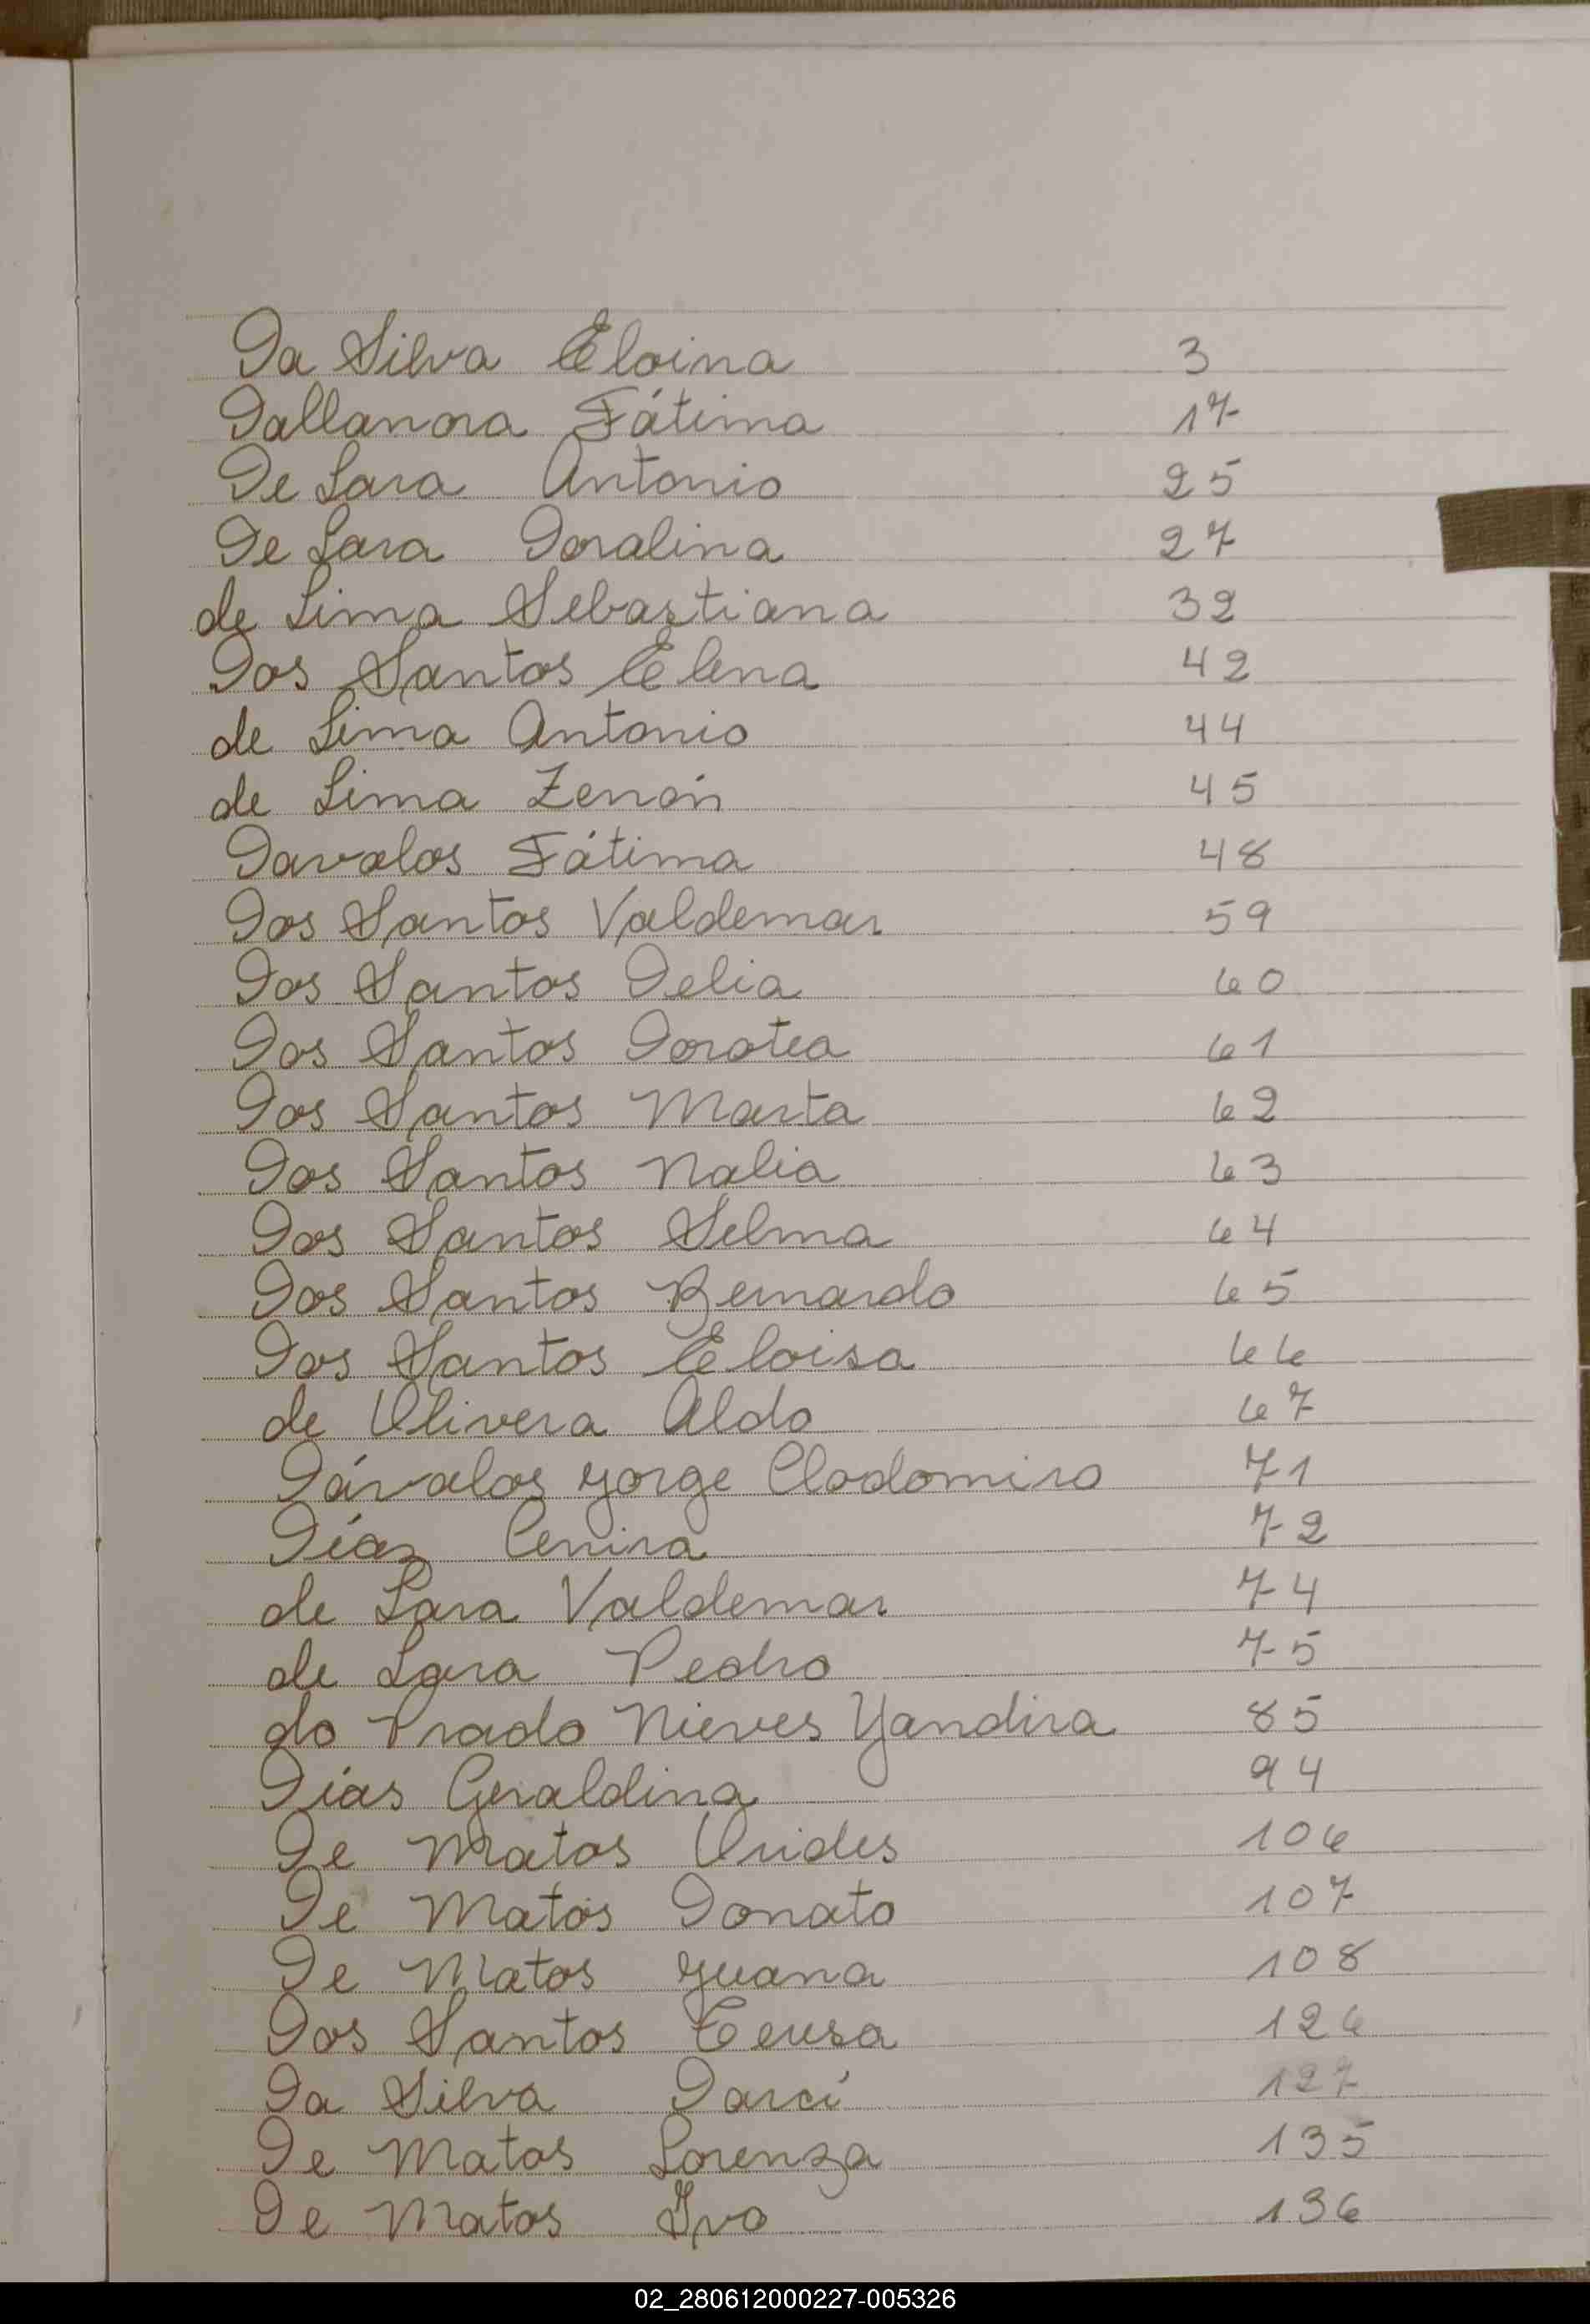 Da Silva Eloina 3
Dallanora Fátima 17
De Lara Antonio 25
De Lara Doralina 27
de Lima Sebastiana 32
Dos Santos Elena 42
de Lima Antonio 44
de Lima Zenón 45
Davalos Fátima 48
Dos Santos Valdemar 59
Dos Santos Delia 60
Dos Santos Dorotea 61
Dos Santos Marta 62
Dos Santos Nalia 63
Dos Santos Selma 64
Dos Santos Bernardo 65
Dos Santos Eloisa 66
de Olivera Aldo 67
Dávalos Jorge Clodomiro 71
Díaz Cenira 72
de Lara Valdemar 74
de Lara Pedro 75
do Prado Nieves Yandira 85
Días Geraldina 94
De Matos Orides 106
De Matos Donato 107
De Matos Juana 108
Dos Santos Ceusa 126
Da Silva Darci 127
De Matos Lorenza 135
De Matos Ivo 136
02_280612000227-005326